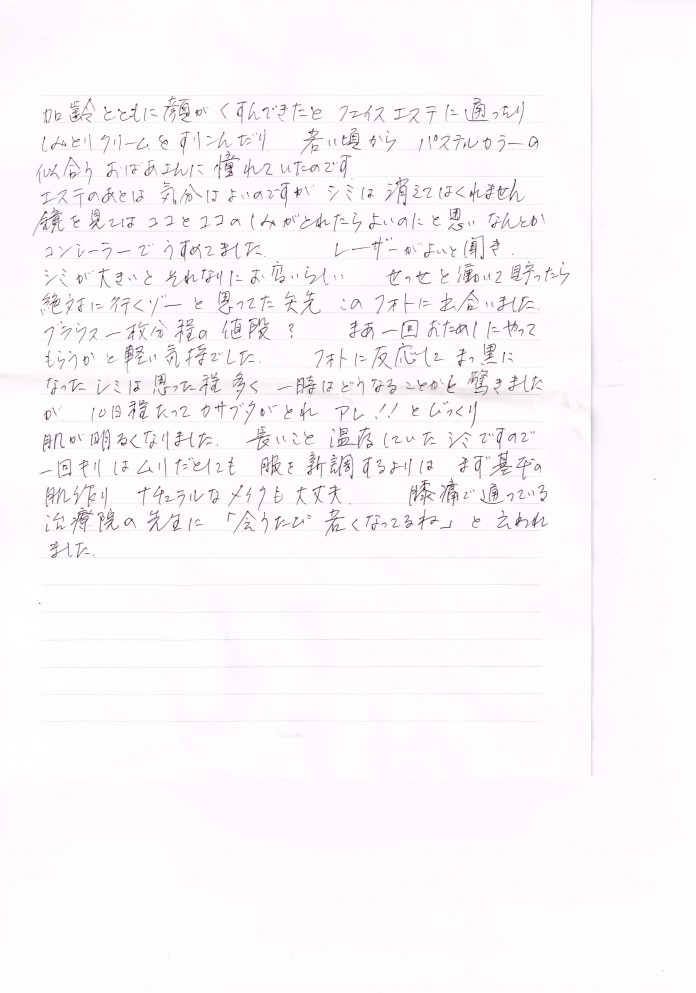 加齢とともに顔がくすんできたと フェイスエステに通ったり
しみとりクリームをすりこんだり 若い頃から パステルカラーの
似合う おばあさんに憧れていたのです
エステのあとは 気分はよいのですが シミは 消えてはくれません
鏡を見ては ココとココのしみがとれたらよいのにと思い なんとか
コンシーラーで うすめてました. レーザーがよいと聞き.
シミが大きいと それなりにお高いらしい せっせと働いて貯ったら
絶対に行くゾーと思ってた矢先 このフォトに出合いました.
ブラウス一枚分程の値段? まあ一回おためしにやって
もらうかと軽い気持でした. フォトに反応して まっ黒に
なったシミは思った程多く 一時はどうなることかと驚きました
が 10日程たって カサブタがとれ アレ!!とびっくり
肌が明るくなりました. 長いこと 温存していたシミですので
一回キリはムリだとしても 服を新調するよりは まず基本の
肌作り ナチュラルなメイクも大丈夫. 膝痛で通っている
治療院の先生に 「会うたび 若くなってるね」と云われ
ました.